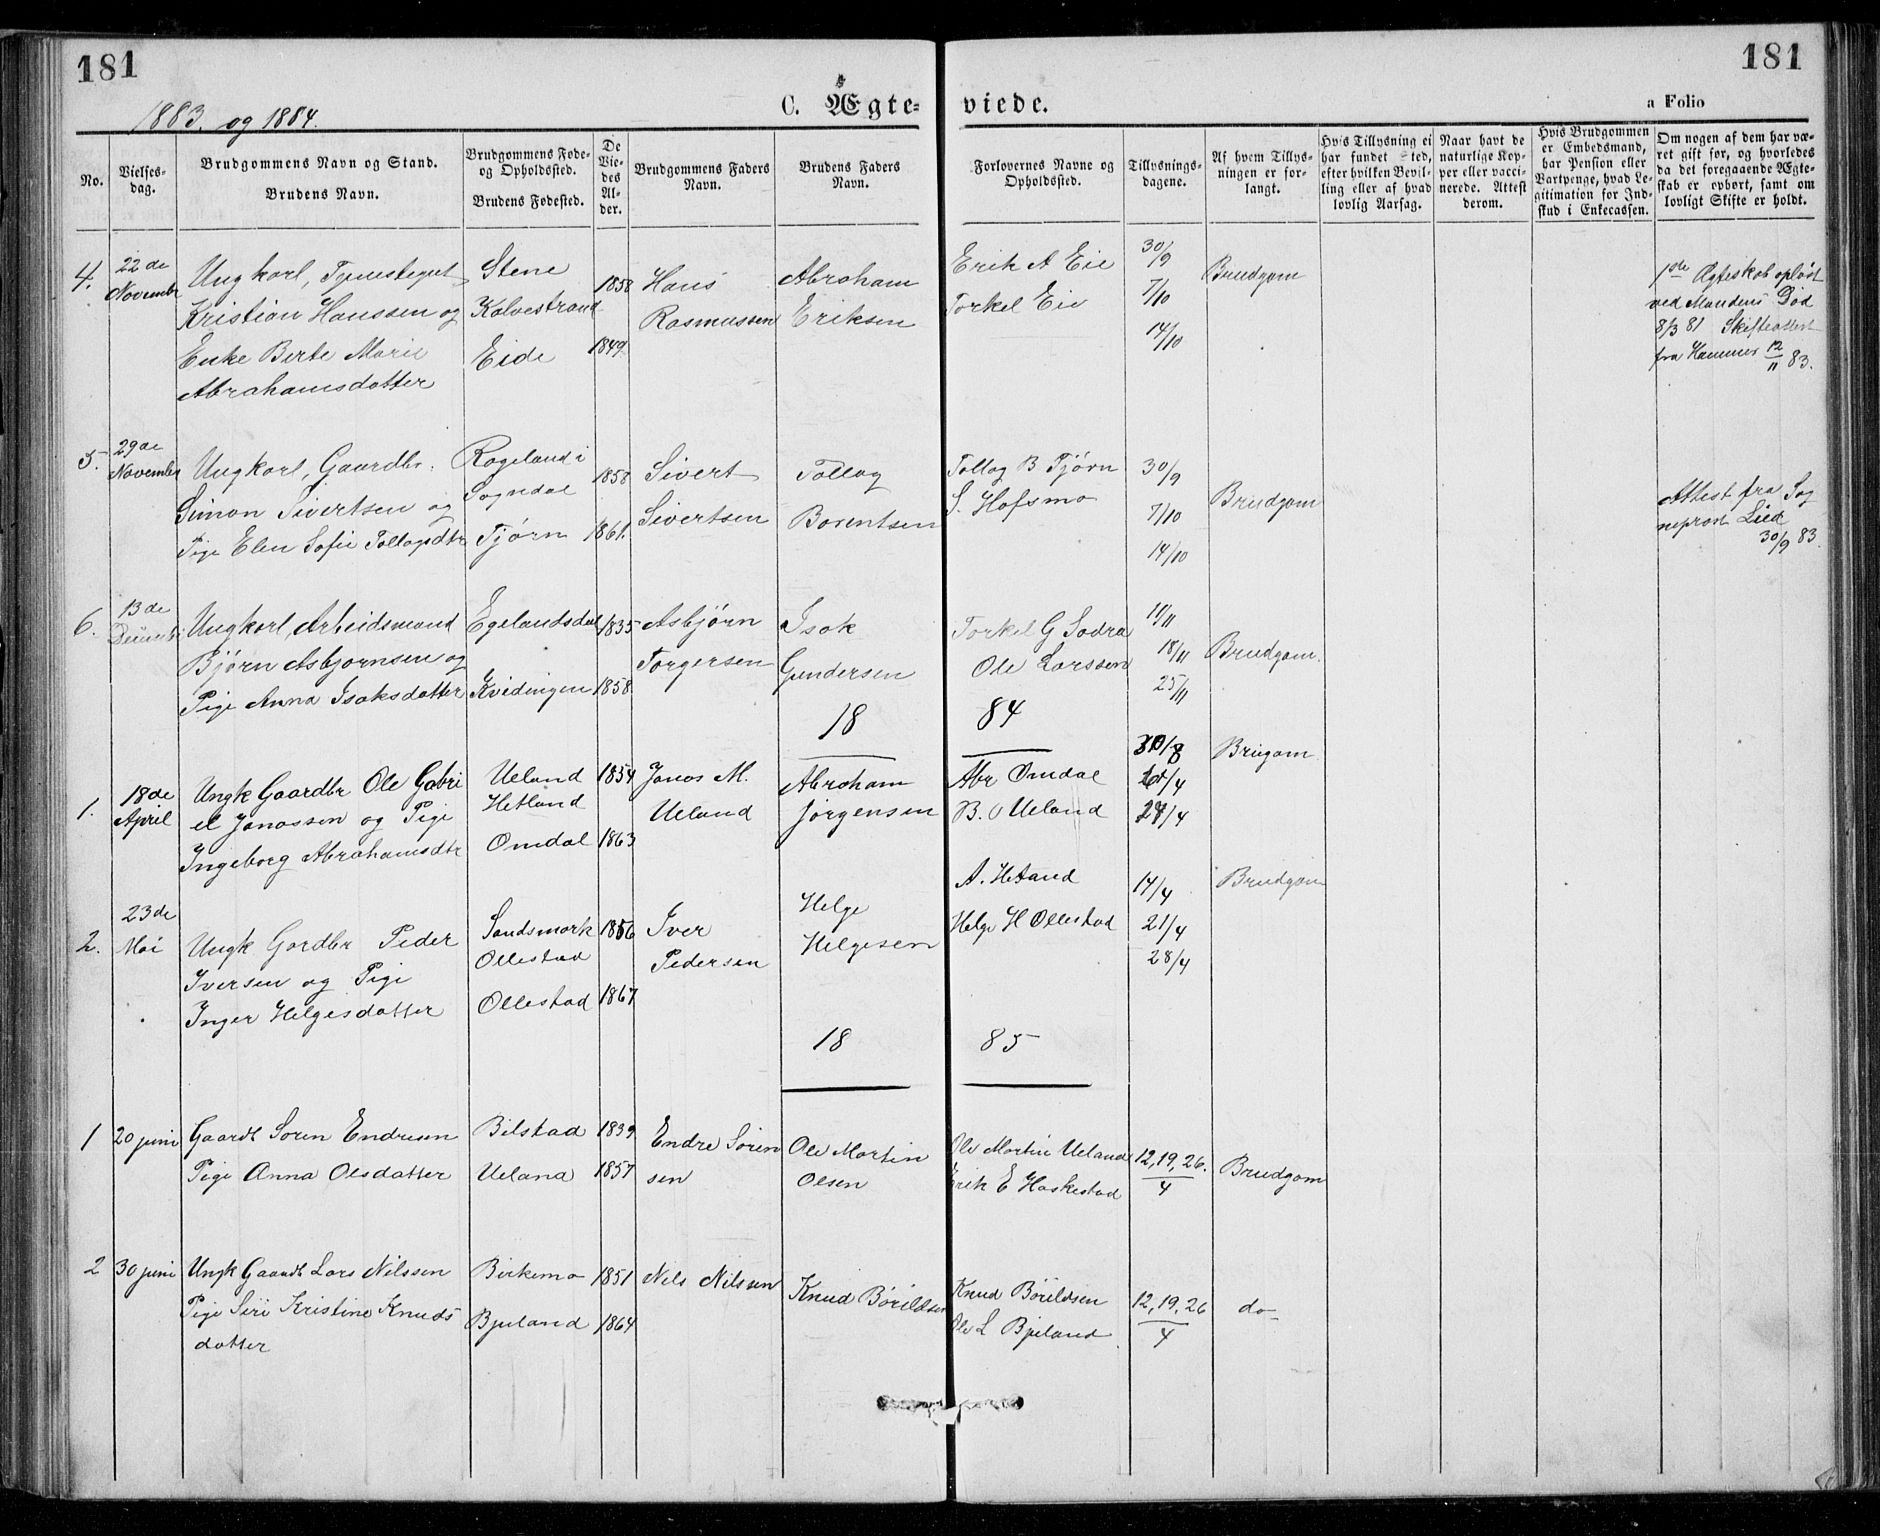 181
181
1883. og 1884.
C. Ægte-
viede.
a Folio
No.
Vielses-
dag.
Brudgommens Navn og Stand.
Brudens Navn.
Brudgommens Føde-
og Opholdssted.
Brudens Fødested.
De
Vie-
des
Al-
der.
Brudgommens Faders
Navn.
Brudens Faders
Navn.
Forlovernes Navne og
Opholdssted.
Tillysnings-
dagene.
Af hvem Tillys-
ningen er for-
langt.
Hvis Tillysning ei
har fundet Sted,
efter hvilken Bevil-
ling eller af hvad
lovlig Aarsag.
Naar havt de
naturlige Kop-
per eller vacci-
nerede. Attest
derom.
Hvis Brudgommen
er Embedsmand,
har Pension eller
Vartpenge, hvad Le-
gitimation for Ind-
skud i Enkecassen.
Om nogen af dem har væ-
ret gift før, og hvorledes
da det foregaaende Ægte-
skab er ophørt, samt om
lovligt Skifte er holdt.
4.
22de
Novembr
Ungkarl, Tjenestegut
Kristian Hanssen og
Enke Berte Marie
Abrahamsdatter
Stene
Kalvestrand
Eide
1858
1849
Hans
Rasmussen
Abraham
Eriksen
Erik A Eie
Torkel Eie
30/9
7/10
14/10
Brudgom
1ste Ægteskab opløst
ved Mandens Død
8/3 81 Skifteattest
fra Hammer 12/11 83.
5.
29de
November
Ungkarl, Gaardbr.
Simon Sivertsen og
Pige Elen Sofie Tollagsdtr
Rageland i
Sogndal
Tjørn
1858
1861.
Sivert
Sivertsen
Tollag
Berentsen
Tollag B Tjørn
S. Hofsmo
30/9
7/10
14/10
Brudgom
Attest fra Sog
neprest Lied
30/9 83.
6.
13de
Decemb
Ungkarl, Arbeidsmand
Bjørn Asbjørnsen og
Pige Anna Isaksdatter
Egelandsdal
Kvidingen
1835
1858.
Asbjørn
Torgersen
Isak
Gundersen
Torkel G Lodra
Ole Larssen
11/11
18/11
25/11
Brudgom.
18 84
1.
18de
April
Ungk Gaardbr Ole Gabri
el Jonassen og Pige
Ingeborg Abrahamsdtr
Ueland
Hetland
Omdal
1854
1863
Jonas M.
Ueland
Abraham
Jørgensen
Abr Omdal
B. O Ueland
Brugom
2.
23de
Mai
Ungk Gardbr Peder
Iversen og Pige
Inger Helgesdatter
Sandsmark
Ollestad
Ollestad
1856
1867
Iver
Pedersen
Helge
Helgesen
A. Hetland
Helge H Ollestad
14/4
21/4
28/4
Brudgom
18 85
1
20 juni
Gaardb Søren Endresen
Pige Anna Olsdatter
Bilstad
Ueland
1839
1857
Endre Søren
sen
Ole Martin
Olsen
Ole Martin Ueland
Erik E Haskestad
12, 19, 26.
4
Brudgom
2
30 juni
Ungk Gaardb Lars Nilssen
Pige Siri Kristine Knuds
datter
Birkemo
Bjuland
1851
1864
Nils Nilssen
Knud Børildsen
Knud Børildsen
Ole L Bjuland
12, 19, 26
4
do